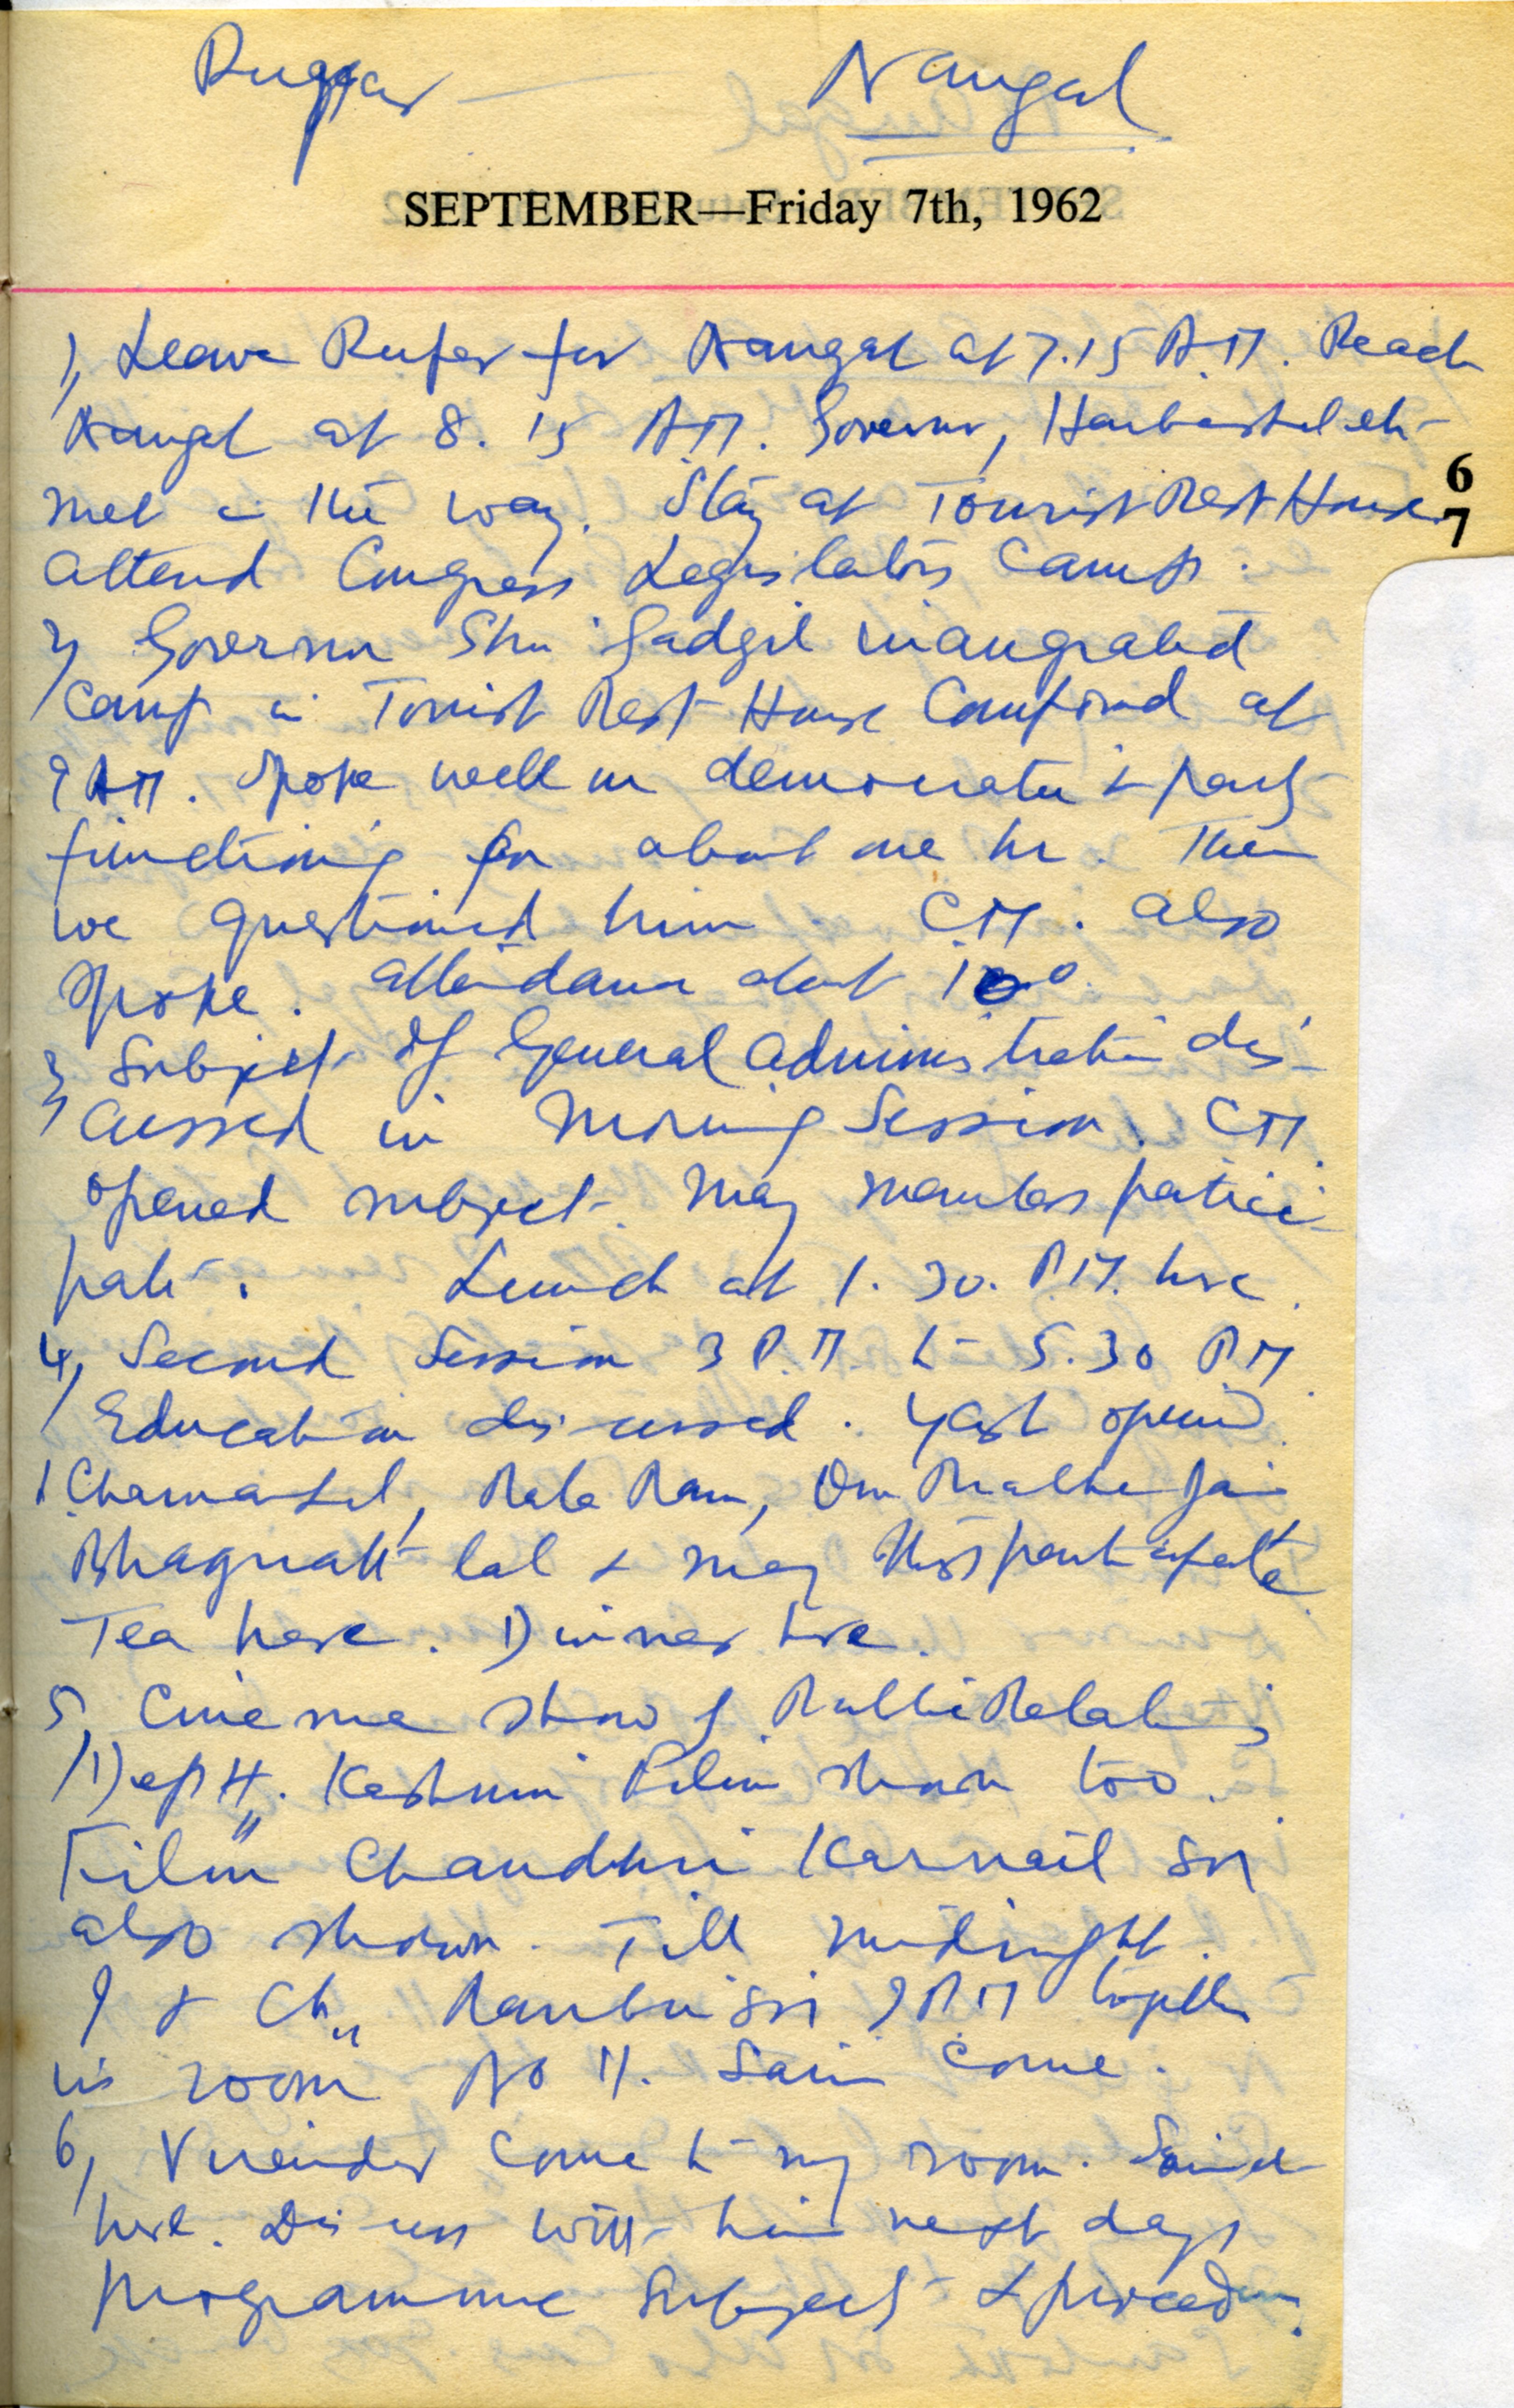 Nangal
SEPTEMBER—Friday 7th, 1962
1, Leave Rupar for Nangal at 7.15 A.M. Reach
Nangal at 8.15 A.M. Governor,
met in the way. Stay at Tourist Rest House.
6
7
attend Congress Legislators Camp.
2, Governor Shri Gadgil inaugrated
Camp in Tourist Rest House Compound at
9 AM. Spoke well on democratic & party
functioning for about one hr. Then
we questioned him. C.M. also
spoke. attendance about 100
3, Subject of General administration dis-
cussed in Morning Session. C.M.
opened subject. Many members partici-
pate. Lunch at 1.30. P.M. here.
4, Second Session 3 P.M. to 5.30 P.M.
Education discussed. Yash opened.
Rala Ram, Om Prabha Jain
Bhagwat lal & many others participate.
Tea here. Dinner here.
5, Cinema show of Public Relations
Deptt. Kashmir Film shown too.
Film Chaudhri Karnail Sn
also shown. Till midnight.
I & Ch. Ranbir Sn M.P. together
in room No 11. Saini come.
6, Virender come to my room.
here. Discuss with him next days
programme subject & procedure.